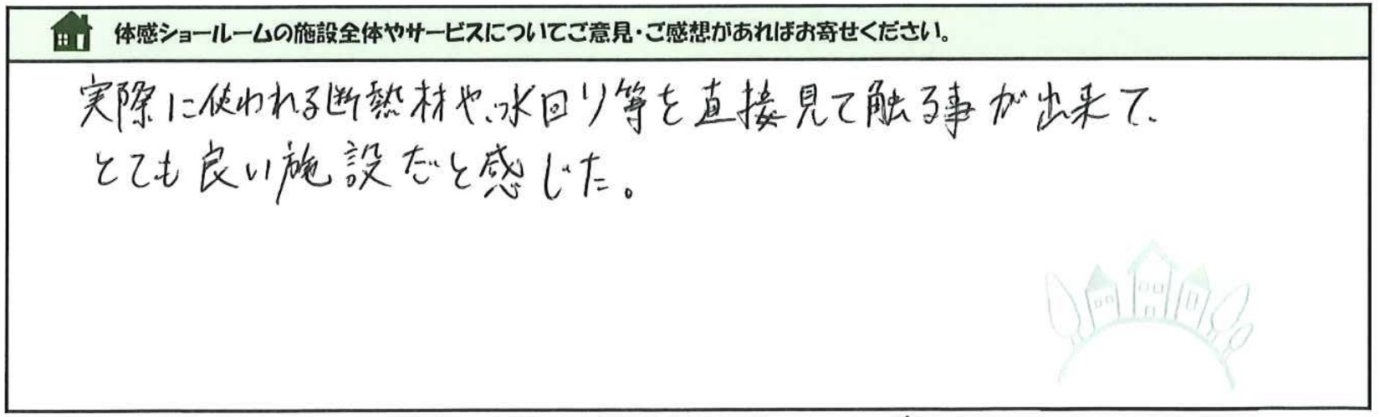 体感ショールームの施設全体やサービスについてご意見・ご感想があればお寄せください。
実際に使われる断熱材や、水回り等を直接見て触る事が出来て、
とても良い施設だと感じた。